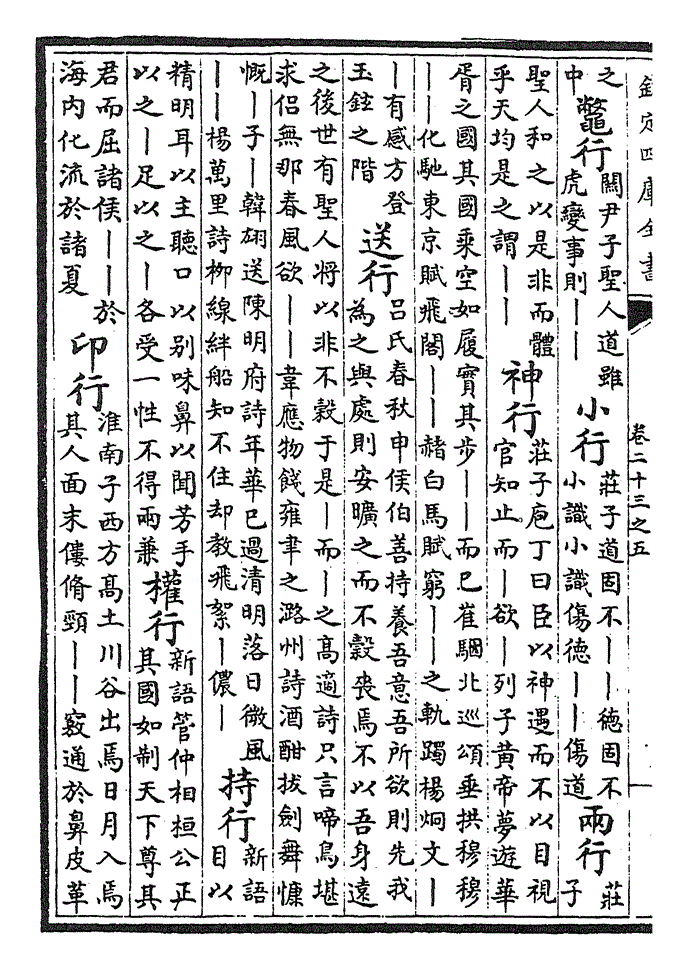 欽定四庫全書
卷二十三之五
之
中
鼈行
關尹子聖人道雖
虎變事則｜｜
小行
莊子道固不｜｜德固不
小識小識傷德｜｜傷道
兩行
莊
子
聖人和之以是非而體
乎天均是之謂｜｜
神行
莊子庖丁曰臣以神遇而不以目視
官知止而｜欲｜列子黃帝夢遊華
胥之國其國乘空如履實其步｜｜而已崔駰北巡頌垂拱穆穆
｜｜化馳東京賦飛閣｜｜赭白馬賦窮｜｜之軌躅楊炯文｜
｜有感方登
玉鉉之階
送行
呂氏春秋申侯伯善持養吾意吾所欲則先我
為之與處則安曠之而不穀喪焉不以吾身遠
之後世有聖人將以非不穀于是｜而｜之髙適詩只言啼鳥堪
求侶無那春風欲｜｜韋應物餞雍聿之潞州詩酒酣拔劍舞慷
慨｜子｜韓翃送陳明府詩年華已過清明落日微風
｜｜楊萬里詩栁線絆船知不住却教飛絮｜儂｜
持行
新語
目以
精明耳以主聽口以别味鼻以聞芳手
以之｜足以之｜各受一性不得兩兼
權行
新語管仲相桓公正
其國如制天下尊其
君而屈諸侯｜｜於
海内化流於諸夏
印行
淮南子西方髙土川谷出焉日月入焉
其人面末僂脩頸｜｜竅通於鼻皮革